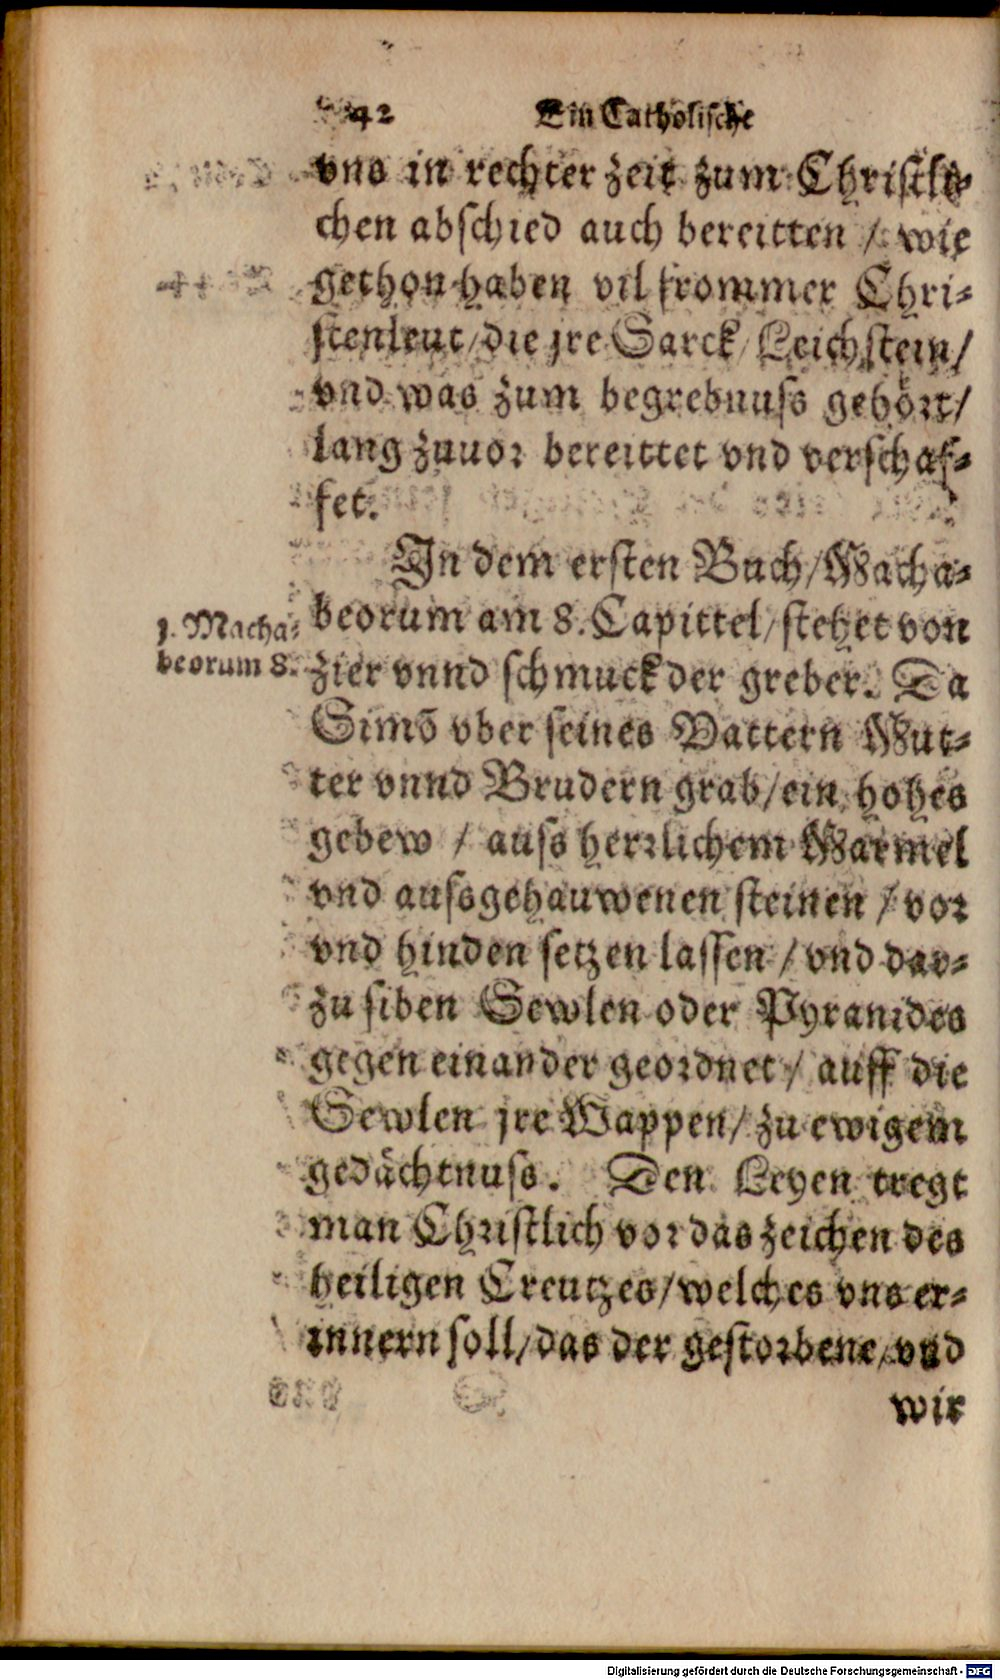 42 Ein Catholische
vns in rechter zeit zum Christli-
chen abschied auch bereitten / wie
gethon haben vil frommer Chri-
stenleut / die jre Sarck / Leichstein /
vnd was zum begrebnuss gehört /
lang zuuor bereittet vnd verschaf-
fet.
In dem ersten Buch / Macha-
beorum am 8. Capittel / stehet von
1. Macha-
beorum 8.
zier vnnd schmuck der greber. Da
Simō vber seines Vattern Mut-
ter vnnd Brudern grab / ein hohes
gebew / auss herrlichem Marmel
vnd aussgehauwenen steinen / vor
vnd hinden setzen lassen / vnd dar-
zu siben Sewlen oder Pyramides
gegen einander geordnet / auff die
Sewlen jre Wappen / zu ewigem
gedächtnuss. Den Leyen tregt
man Christlich vor das zeichen des
heiligen Creutzes / welches vns er-
innern soll / das der gestorbene / vnd
wir
Digitalisierung gefördert durch die Deutsche Forschungsgemeinschaft - DFG